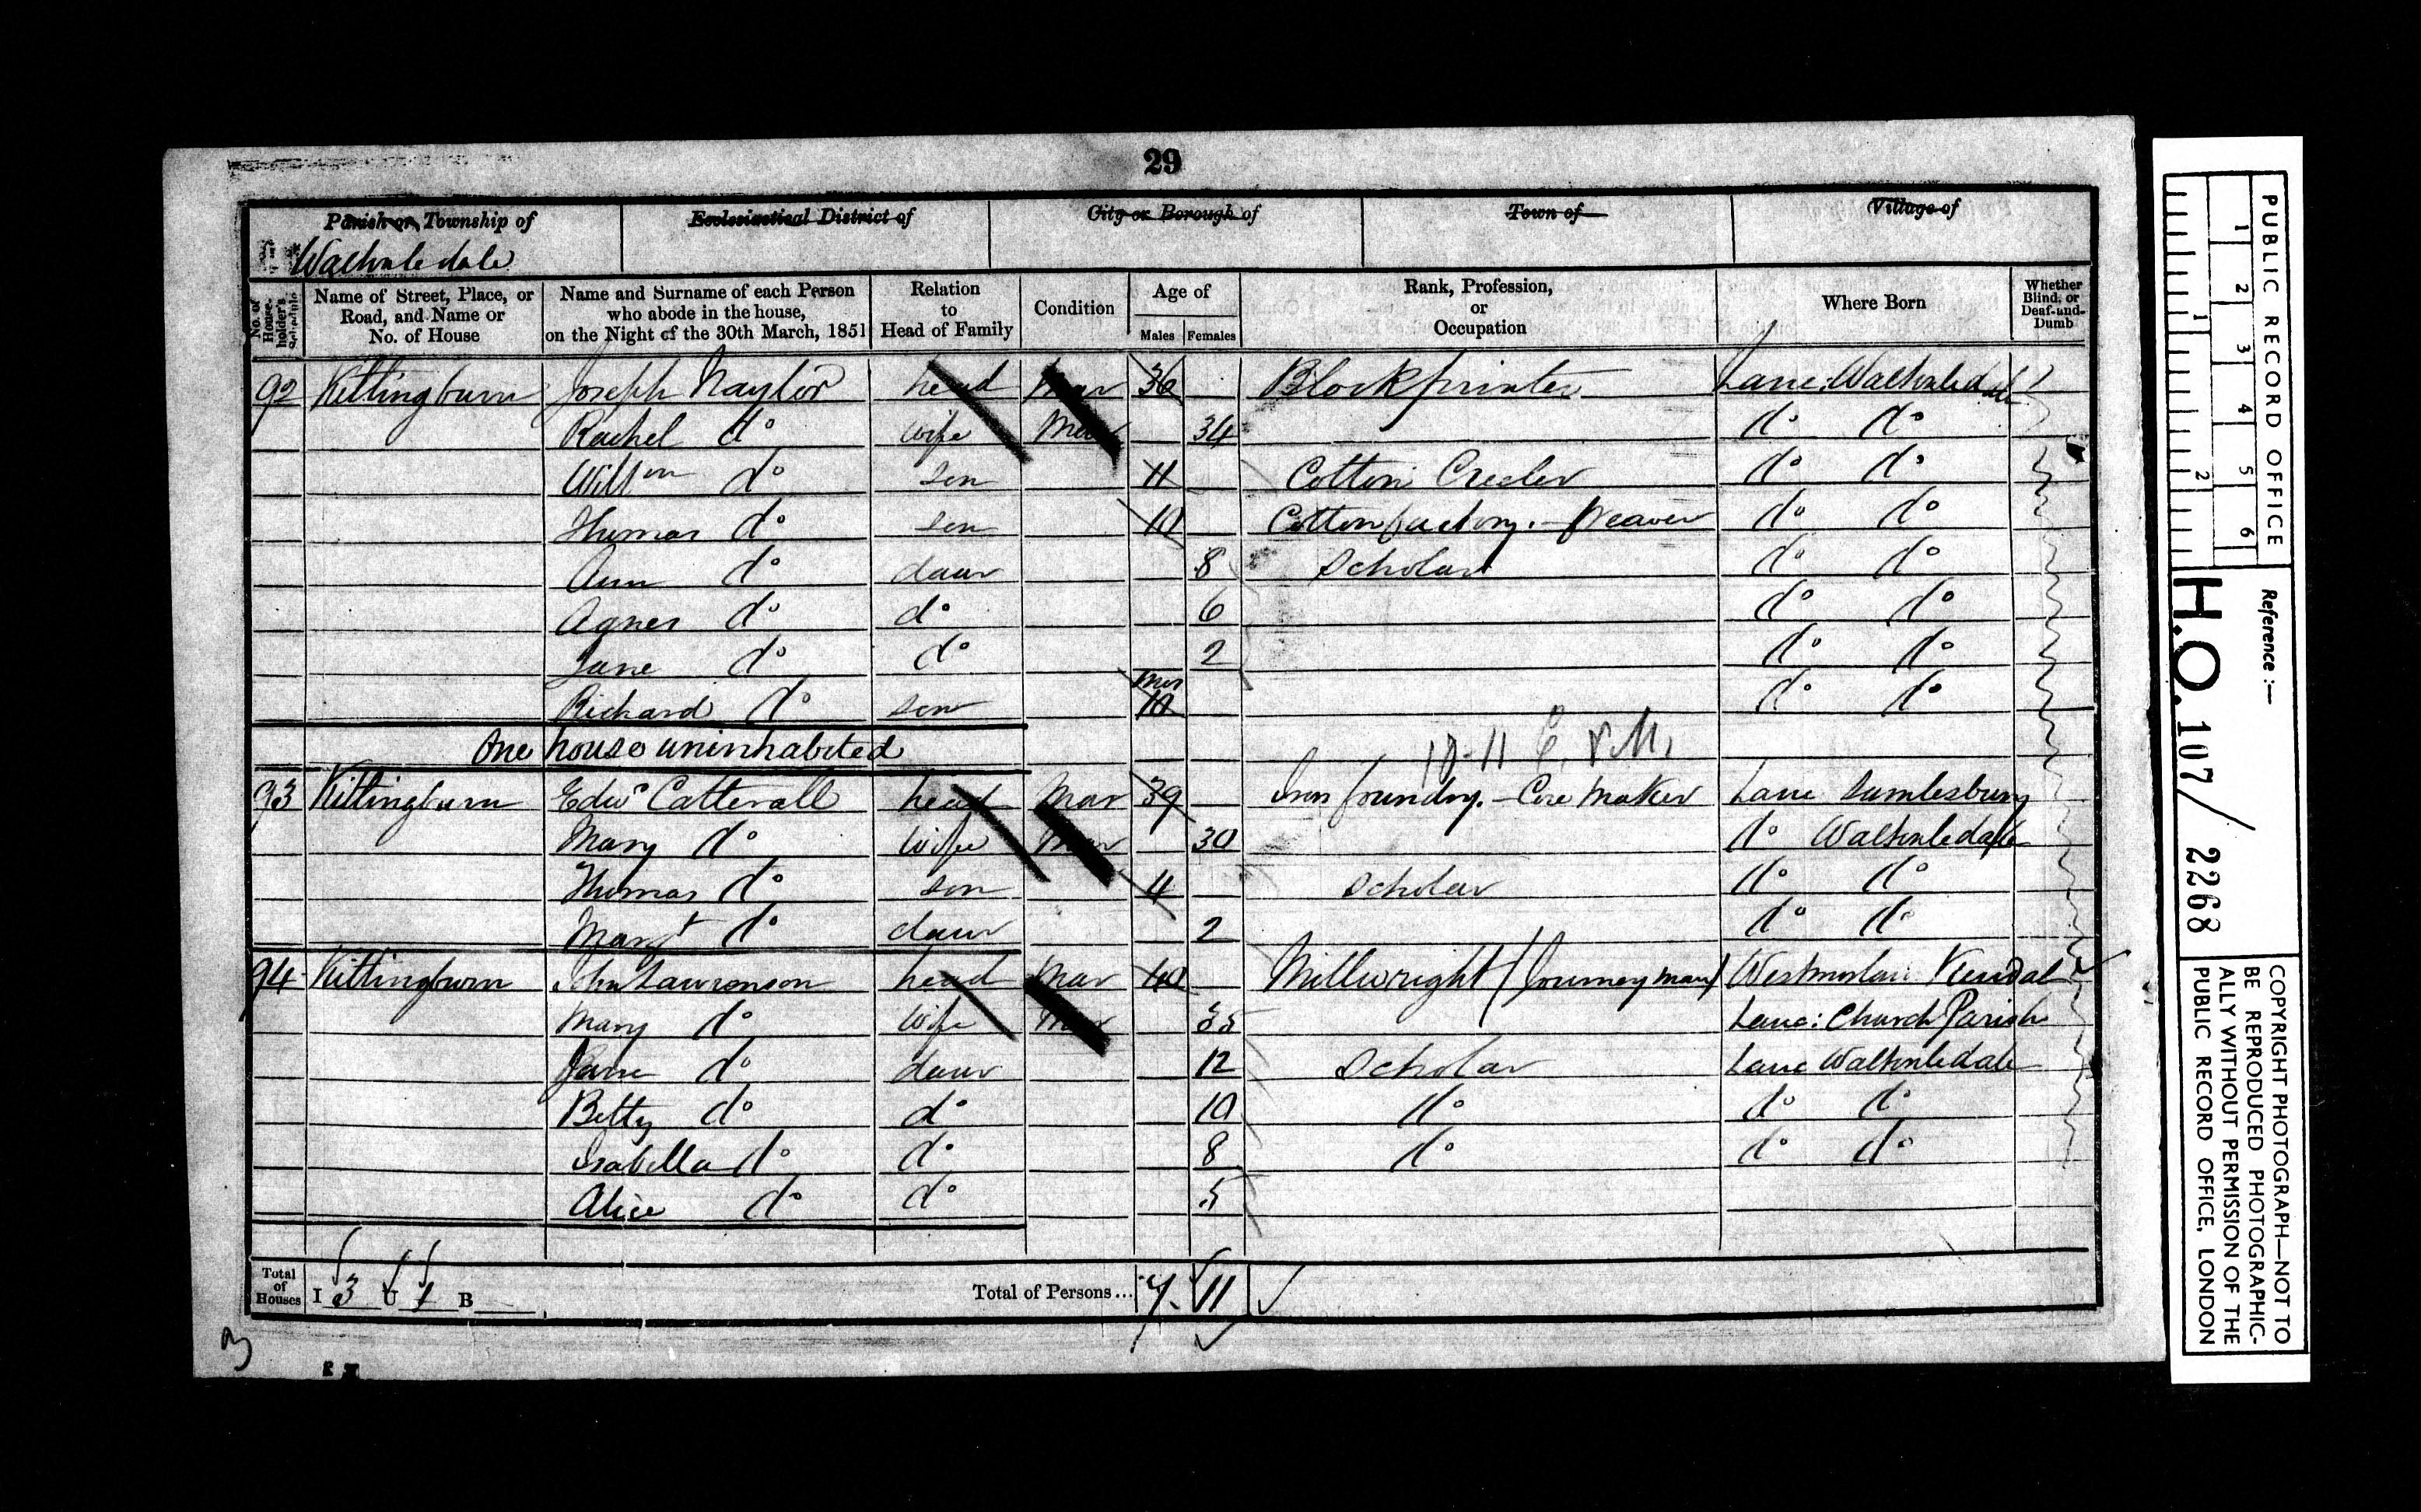 29
Parish or Township of Ecclesiastical District of City or Borough of Town of Village of
Waltonledale
No. of House-holder's Schedule Name of Street, Place, or Road, and Name or No. of House Name and Surname of each Person who abode in the house, on the Night of the 30th March, 1851 Relation to Head of Family Condition Age of Males Females Rank, Profession, or Occupation Where Born Whether Blind, or Deaf-and-Dumb
92 Kittingburn Joseph Naylor head Mar 36 Blockprinter Lanc: Waltonledale
Rachel do wife Mar 34 do do
Willm do son 11 Cotton Creeler do do
Thomas do son 10 Cotton factory.- Weaver do do
Ann do daur 8 Scholar do do
Agnes do do 6 do do
Jane do do 2 do do
Richard do son mos 10 do do
One house uninhabited
93 Kittingburn Edwd Catterall head Mar 39 Iron foundry.- Core Maker Lanc Samlesbury
Mary do wife Mar 30 do Waltonledale
Thomas do son 4 Scholar do do
Margt do daur 2 do do
94 Kittingburn John Lawrenson head Mar 40 Millwright (Journeyman) Westmorlan Kendal
Mary do wife Mar 35 Lanc: Church Parish
Jane do daur 12 Scholar Lanc Waltonledale
Betty do do 10 do do do
Isabella do do 8 do do do
Alice do do 5
Total of Houses I 3 U 1 B Total of Persons... 7 11
3
PUBLIC RECORD OFFICE
1 2 3 4 5 6
1 2
Reference :-
H.O. 107/2268
COPYRIGHT PHOTOGRAPH—NOT TO
BE REPRODUCED PHOTOGRAPHIC-
ALLY WITHOUT PERMISSION OF THE
PUBLIC RECORD OFFICE, LONDON